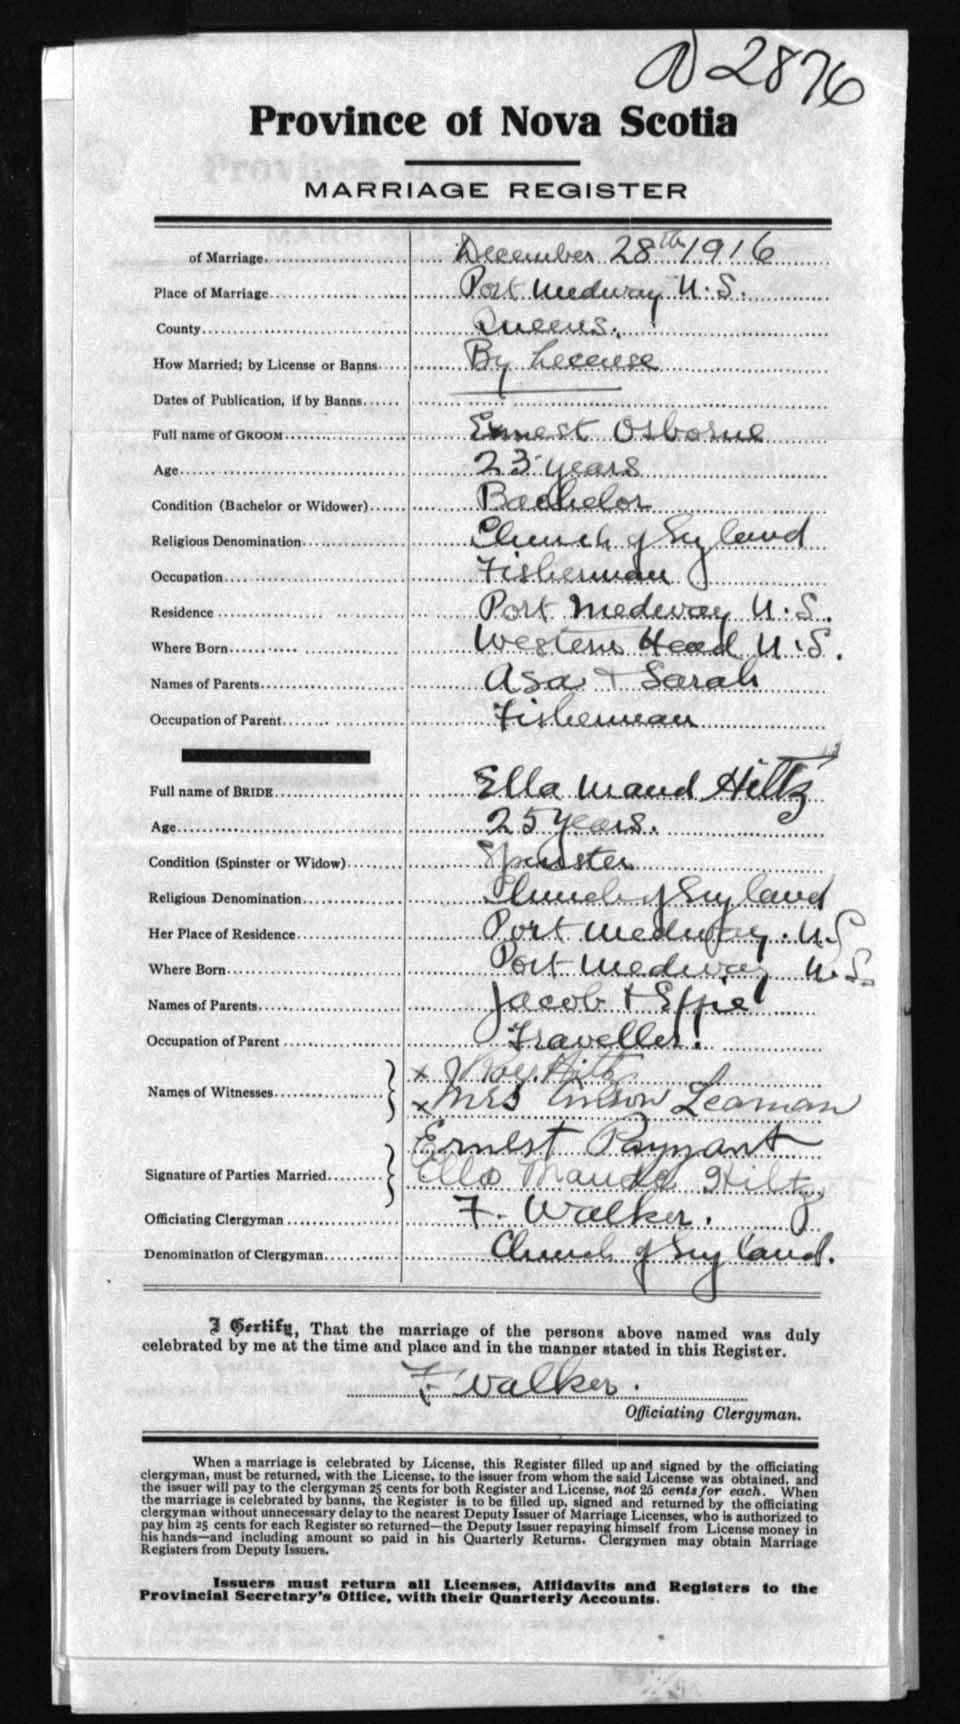 2876
Province of Nova Scotia
MARRIAGE REGISTER
of Marriage December 28th 1916
Place of Marriage Port Medway N.S.
County Queens.
How Married; by License or Banns By License
Dates of Publication, if by Banns
Full name of GROOM Ernest Osborne
Age 23 years
Condition (Bachelor or Widower) Bachelor
Religious Denomination Church of England
Occupation Fisherman
Residence Port Medway N.S.
Where Born Western Head N.S.
Names of Parents Asa + Sarah
Occupation of Parent Fisherman
Full name of BRIDE Ella Maud Hiltz
Age 25 years.
Condition (Spinster or Widow) Spinster
Religious Denomination Church of England
Her Place of Residence Port Medway. N.S.
Where Born Port Medway N.S.
Names of Parents Jacob + Effie
Occupation of Parent Traveller.
Names of Witnesses x Hiltz
x Mrs Leaman
Signature of Parties Married Ernest Payzant
Ella Maude Hiltz
Officiating Clergyman F. Walker.
Denomination of Clergyman Church of England.
I Certify, That the marriage of the persons above named was duly
celebrated by me at the time and place and in the manner stated in this Register.
F. Walker.
Officiating Clergyman.
When a marriage is celebrated by License, this Register filled up and signed by the officiating
clergyman, must be returned, with the License, to the issuer from whom the said License was obtained, and
the issuer will pay to the clergyman 25 cents for both Register and License, not 25 cents for each. When
the marriage is celebrated by banns, the Register is to be filled up, signed and returned by the officiating
clergyman without unnecessary delay to the nearest Deputy Issuer of Marriage Licenses, who is authorized to
pay him 25 cents for each Register so returned—the Deputy Issuer repaying himself from License money in
his hands—and including amount so paid in his Quarterly Returns. Clergymen may obtain Marriage
Registers from Deputy Issuers.
Issuers must return all Licenses, Affidavits and Registers to the
Provincial Secretary's Office, with their Quarterly Accounts.